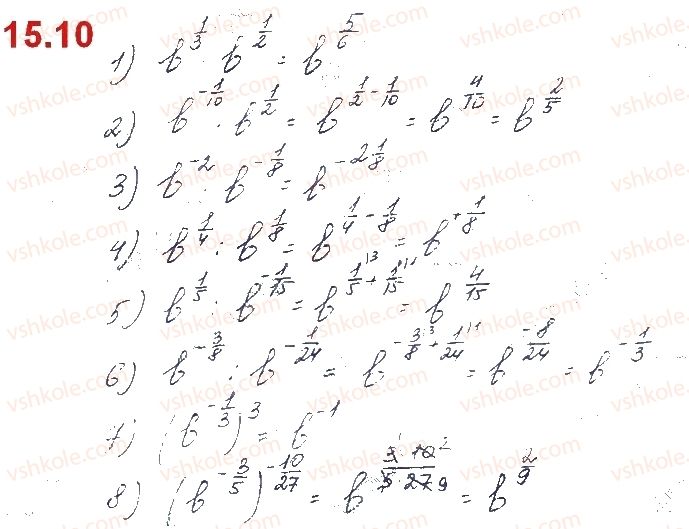 15.10
1) b^{1/3} · b^{1/2} = b^{5/6}
2) b^{-1/10} · b^{1/2} = b^{1/2 - 1/10} = b^{4/10} = b^{2/5}
3) b^{-2} · b^{-1/8} = b^{-2 1/8}
4) b^{1/4} : b^{1/8} = b^{1/4 - 1/8} = b^{+1/8}
5) b^{1/5} : b^{-1/15} = b^{1/5 + 1/15} = b^{4/15}
6) b^{-3/8} : b^{-1/24} = b^{-3/8 + 1/24} = b^{-8/24} = b^{-1/3}
7) (b^{-1/3})^3 = b^{-1}
8) (b^{-3/5})^{-10/27} = b^{3·10/5·27} = b^{2/9}
vshkole.com